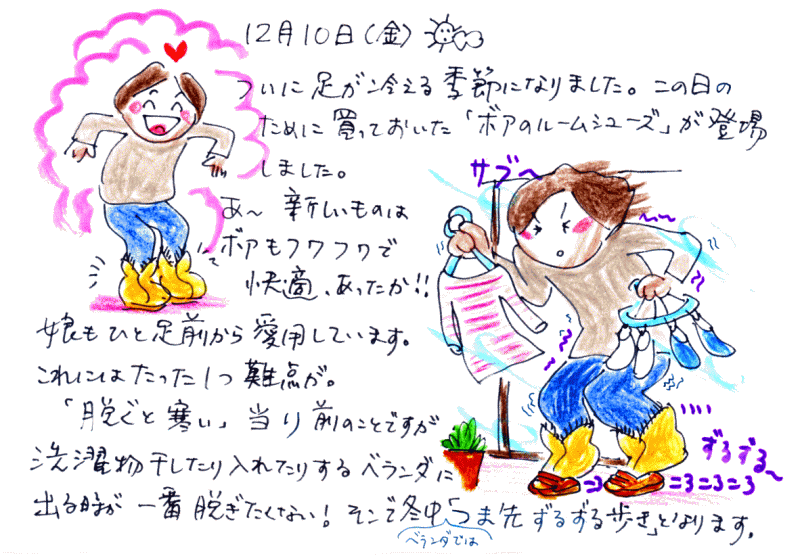 12月10日(金)
ついに足が冷える季節になりました。この日の
ために買っておいた「ボアのルームシューズ」が登場
しました。
サブ〜
あ〜新しいものは
ボアもフワフワで
快適、あったか!!
娘もひと足前から愛用しています。
これにはたった1つ難点が。
「脱ぐと寒い」当り前のことですが
ずるずる〜
洗濯物干したり入れたりするベランダに
出る時が一番脱ぎたくない!そこで冬中「つま先ずるずる歩き」となります。
ベランダでは